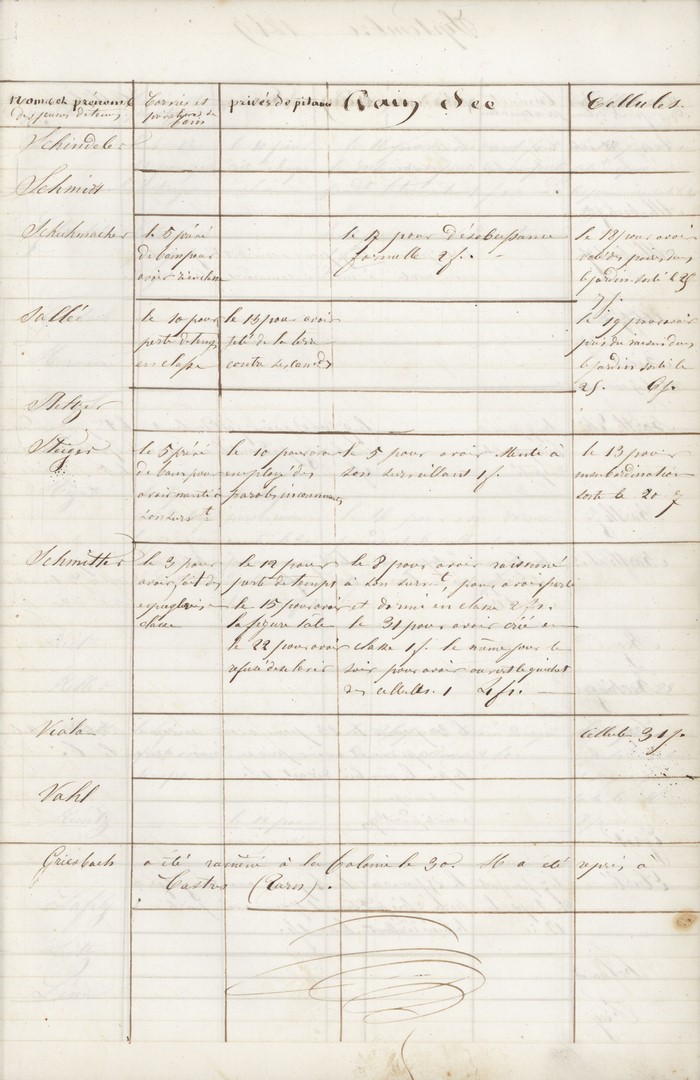 Septembre
Noms et prénoms
des jeunes détenus
Corvées et
privés de pitance
Pain Sec
Cellules
Schindeler
Schmitt
Schuhmacher
le 5 privé
de bain pour
avoir
le 17 pour désobéissance
formelle 2 f.
le 18 pour avoir
volé des poires dans
le jardin sorti le 25
7 f.
Sallée
le 10 pour
perte de temps
en classe
le 13 pour avoir
jeté de la terre
contre ses camds
le 19 pour avoir
pris du raisin dans
le jardin sorti le
25. 6 f.
Steltzer
le 5 privé
de bain pour
avoir menti à
son survt
le 10 pour avoir
employé des
paroles inconvenantes
le 5 pour avoir menti à
son surveillant 1 f.
le 13 pour
insubordination
sorti le 20 7
Schmitter
le 3 pour
avoir fait des
espiègleries
classe
le 12 pour
perte de temps
le 15 pour avoir
la figure sale
le 22 pour avoir
refusé de se laver
le 8 pour avoir raisonné
à son survt, pour avoir parlé
et dormi en classe 2 f.
le 31 pour avoir crié en
classe 1 f. le même jour le
soir pour avoir ouvert le guichet
des cellules. 1 4 f.
Viala
Cellule 31 f.
Vahl
Griesbach
a été ramené à la Colonie le 30. Il a été repris à
Castres (Tarn).